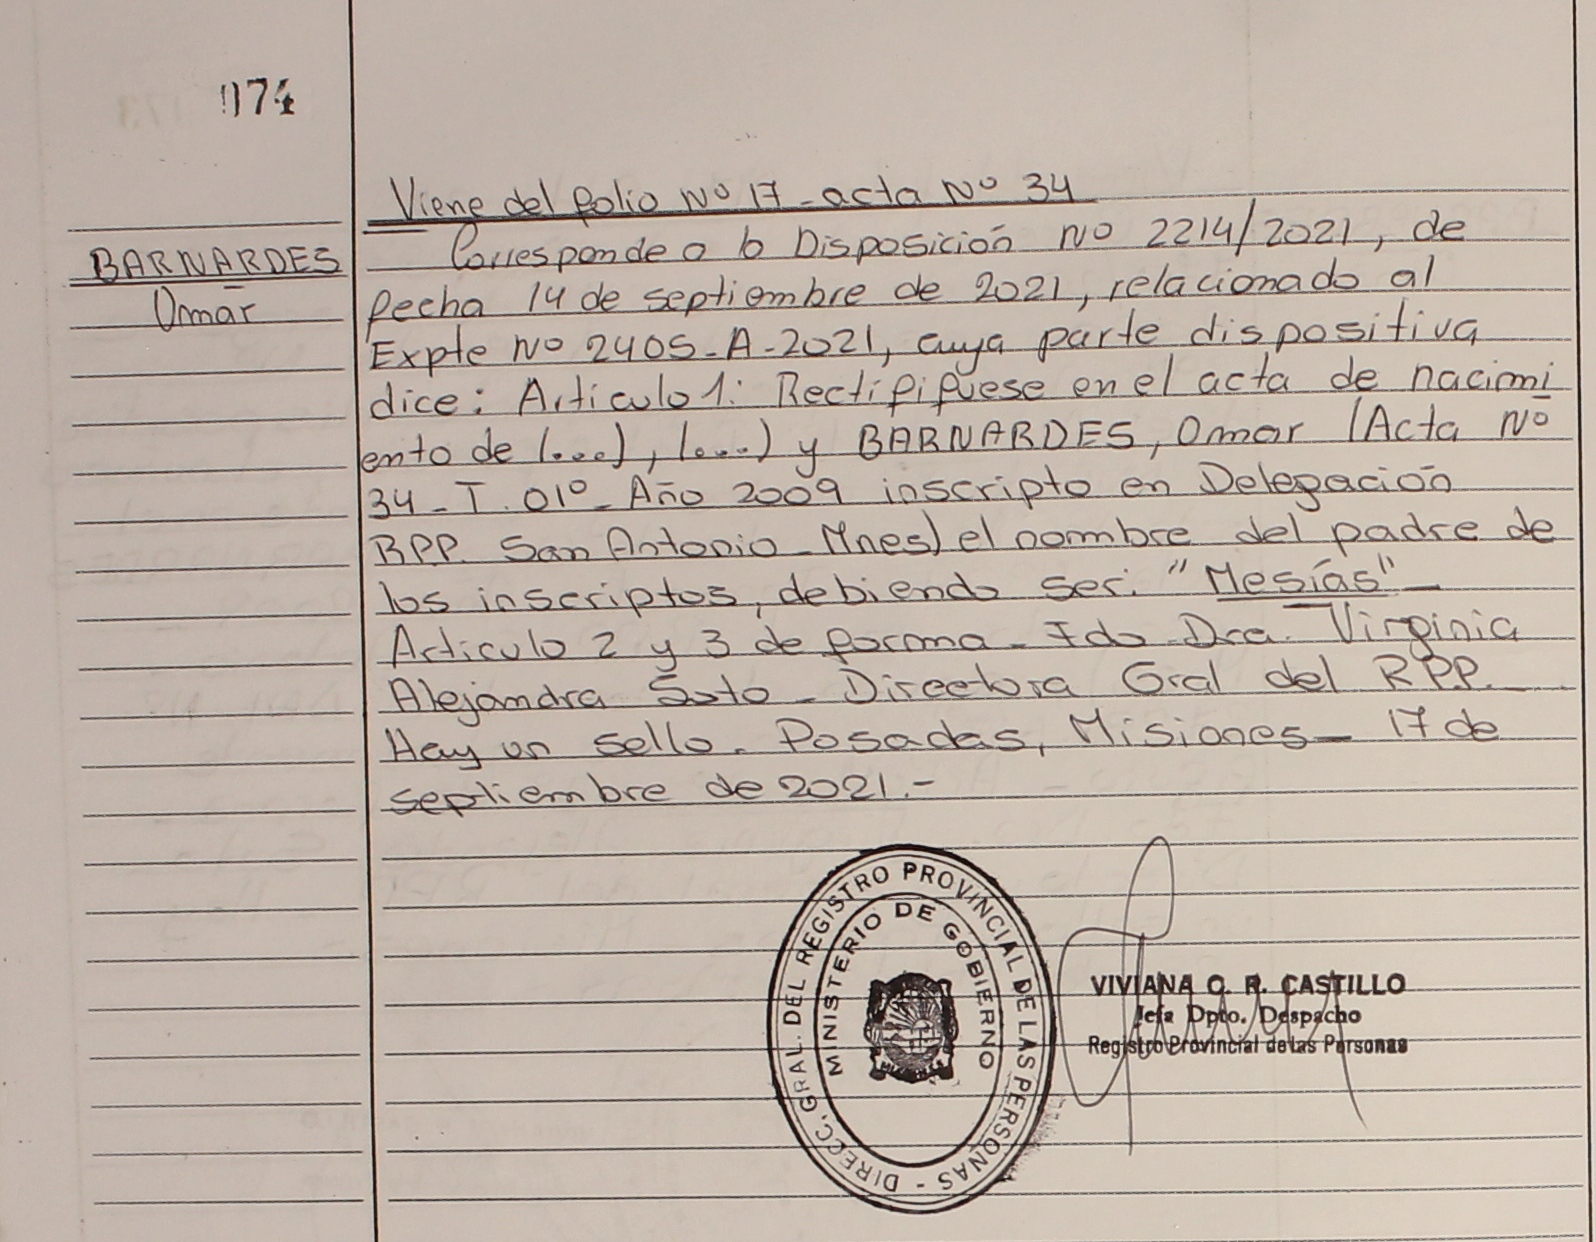 074
Viene del folio Nº 17 - acta Nº 34
BARNARDES
Omar
Corresponde a la Disposición Nº 2214/2021, de
fecha 14 de septiembre de 2021, relacionado al
Expte Nº 2405-A-2021, cuya parte dispositiva
dice: Articulo 1: Rectififuese en el acta de nacimi
ento de (...), (...) y BARNARDES, Omar (Acta Nº
34 - T. 01º - Año 2009 inscripto en Delegación
RPP. San Antonio - Mnes) el nombre del padre de
los inscriptos, debiendo ser: "Mesías" -
Articulo 2 y 3 de forma - Fdo Dra. Virginia
Alejandra Soto - Directora Gral del RPP.
Hay un sello. Posadas, Misiones - 17 de
septiembre de 2021.-
DIRECC. GRAL. DEL REGISTRO PROVINCIAL DE LAS PERSONAS -
MINISTERIO DE GOBIERNO
VIVIANA C. R. CASTILLO
Jefa Dpto. Despacho
Registro Provincial de las Personas